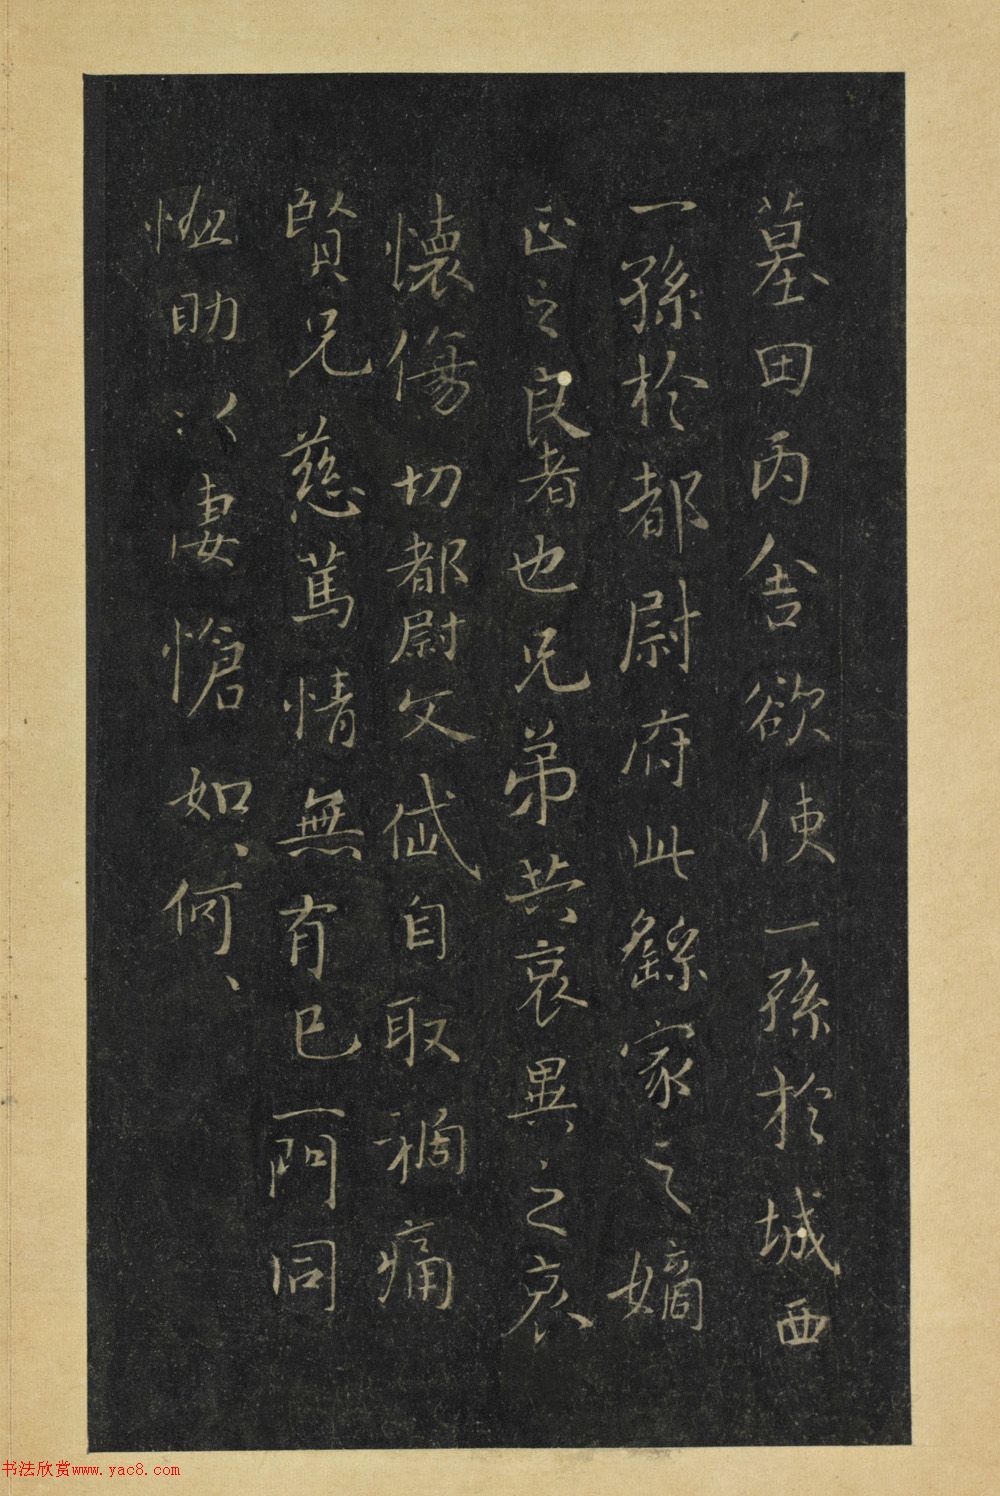 墓田丙舍欲使一孫於城西
一孫於都尉府此繇家之嫡
正之良者也兄弟共哀異之哀
懷傷切都尉文岱自取禍痛
賢兄慈篤情無有已一門同
恤助以妻愴如、何、
书法欣赏www.yac8.com